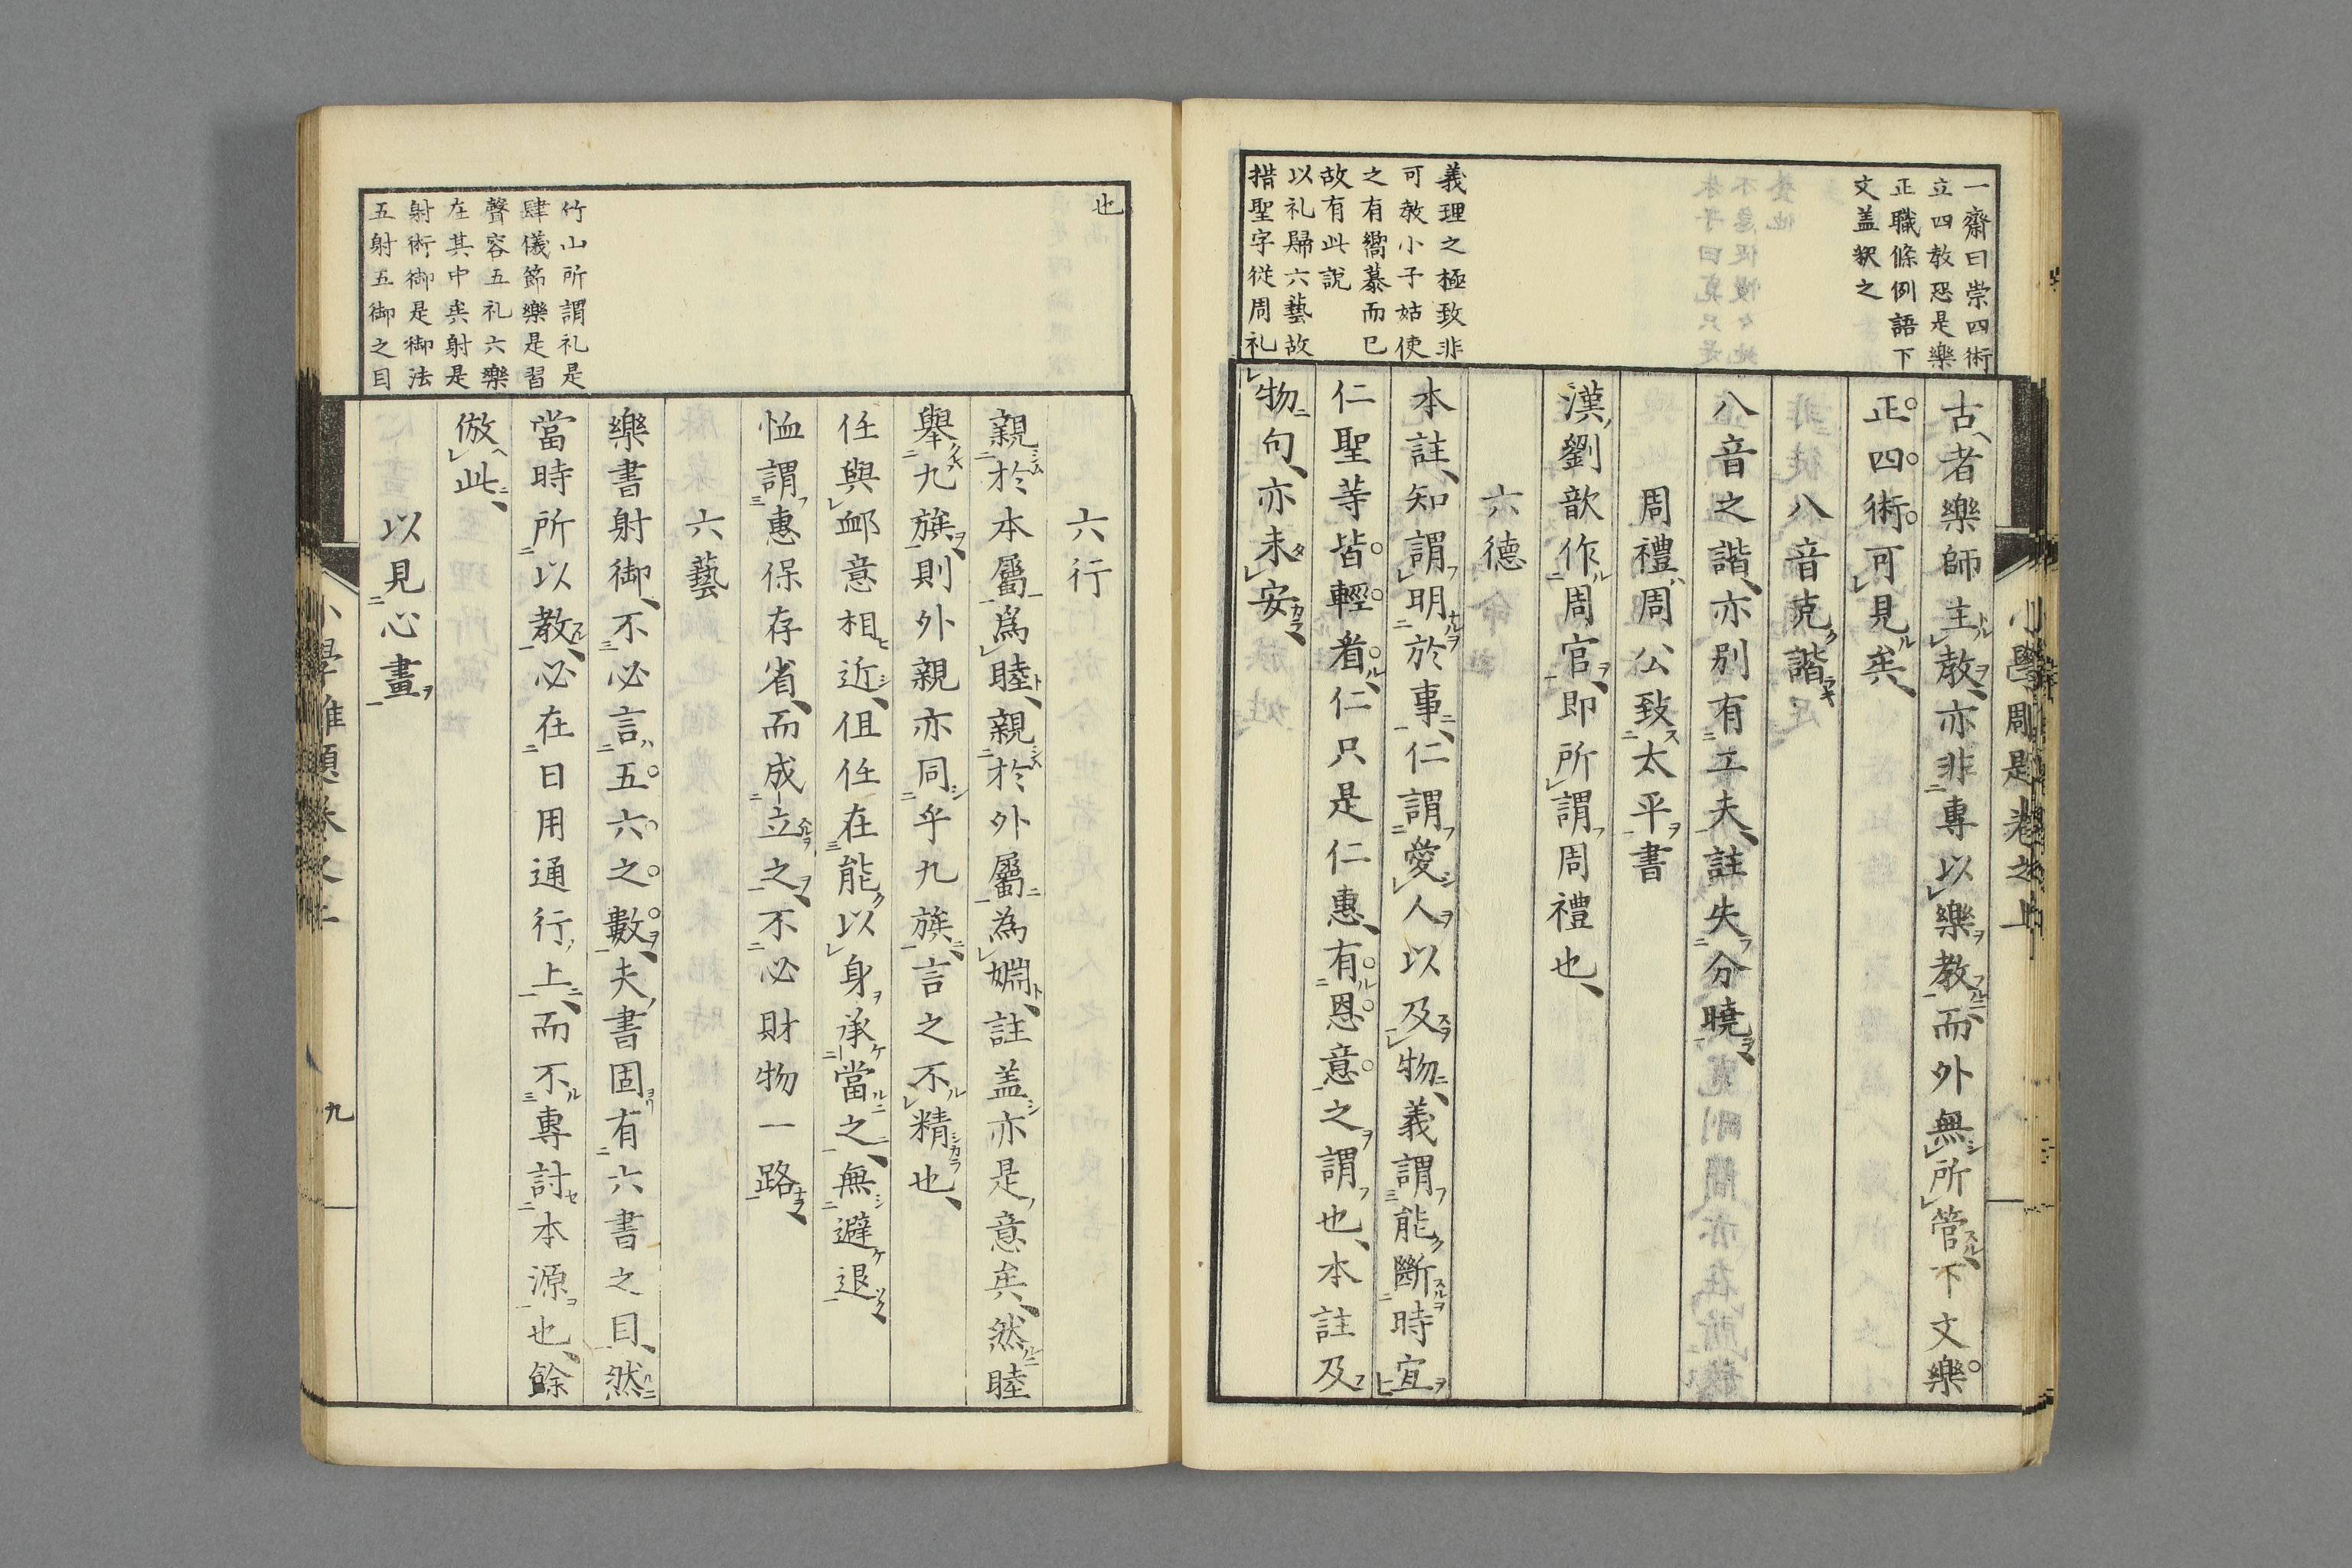 一齋曰崇四術
立四教恐是樂
正職條例語下
文盖釈之
義理之極致非
可教小子姑使
之有嚮慕而已
故有此說
以礼歸六藝故
措聖字従周礼
古者樂師主教亦非專以樂教而外無所管下文樂
正四術可見矣
八音克諧
八音之諧亦別有工夫註失分曉
周禮周公致太平書
漢劉歆作周官即所謂周禮也
六德
本註知謂明於事仁謂愛人以及物義謂能斷時宜
仁聖等皆輕看仁只是仁惠有恩意之謂也本註及
物句亦未安
也
竹山所謂礼是
肆儀節樂是習
聲容五礼六樂
在其中矣射是
射術御是御法
五射五御之目
六行
親於本屬爲睦親於外屬為婣註盖亦是意矣然睦
舉九族則外親亦同乎九族言之不精也
任與䘏意相近但任在能以身承當之無避退
恤謂惠保存省而成立之不必財物一路
六藝
樂書射御不必言五六之數夫書固有六書之目然
當時所以教必在日用通行上而不專討本源也餘
倣此
以見心畫
九